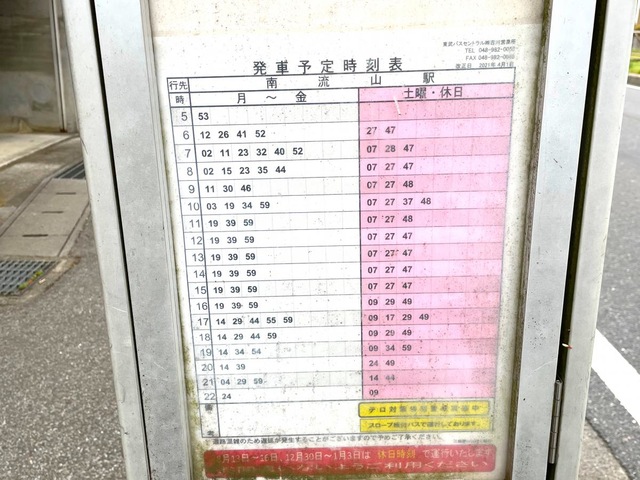 東武バスセントラル㈱吉川営業所
TEL 048-982-0052
改正日 2021年4月1日
発車予定時刻表
行先 南流山駅
時 月～金 土曜・休日
5 53
6 12 26 41 52 27 47
7 02 11 23 32 40 52 07 28 47
8 02 15 23 35 44 07 27 47
9 11 30 46 07 27 48
10 03 19 34 59 07 27 37 48
11 19 39 59 07 27 48
12 19 39 59 07 27 47
13 19 39 59 07 27 47
14 19 39 59 07 27 47
15 19 39 59 07 27 47
16 19 39 59 09 29 49
17 14 29 44 55 59 09 17 29 49
18 14 29 44 59 09 29 49
19 14 34 54 09 34 59
20 14 39 24 49
21 04 29 59 14 44
22 24 09
備
テロ対策特別警戒実施中
スロープ板付バスで運行しております。
道路混雑のため遅延が発生することがございますので予めご了承ください。
12月30日～1月3日は 休日時刻 で運行いたします
ようご利用ください